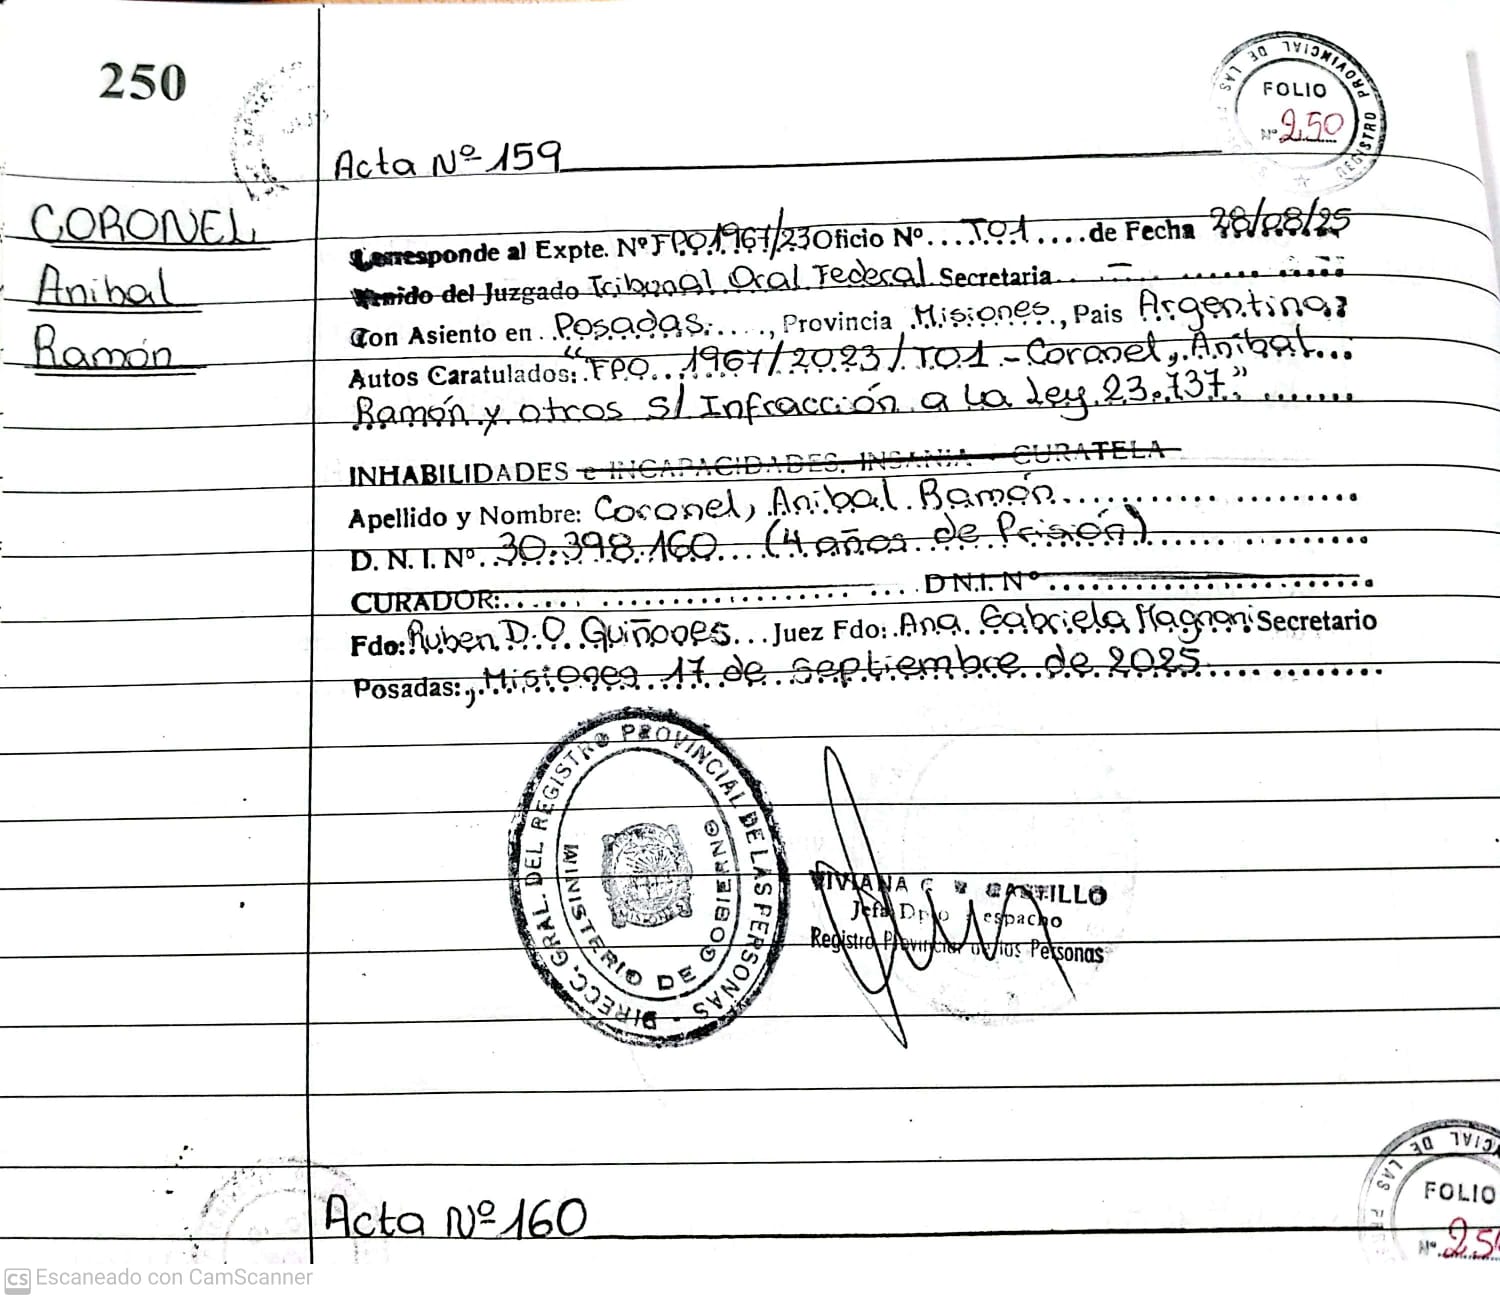 250
FOLIO
Nº 250
REGISTRO PROVINCIAL DE LAS
Acta Nº 159
CORONEL
Anibal
Ramón
Corresponde al Expte. Nº FPO 1967/23 Oficio Nº....TO1....de Fecha 28/08/25
Venido del Juzgado Tribunal Oral Federal Secretaria.. — ......
Con Asiento en ..Posadas....., Provincia Misiones, Pais Argentina
Autos Caratulados: "FPO 1967/2023/TO1 - Coronel, Anibal...
Ramón y otros S/ Infracción a la Ley 23.737" .......
INHABILIDADES e INCAPACIDADES, INSANIA - CURATELA
Apellido y Nombre: Coronel, Anibal Ramón....................
D. N. I. Nº 30.398.160 (4 años de Prisión)..............
CURADOR:.......................... D.N.I. Nº......................
Fdo: Ruben D. O. Quiñones... Juez Fdo: Ana Gabriela Magnani Secretario
Posadas:, Misiones 17 de Septiembre de 2025............
DIRECC. GRAL. DEL REGISTRO PROVINCIAL DE LAS PERSONAS -
MINISTERIO DE GOBIERNO
MISIONES
VIVIANA CASTILLO
Jefa Dpto espacho
Registro Provincial de las Personas
CIAL DE
LAS
FOLIO
Nº 25
Acta Nº 160
CS Escaneado con CamScanner